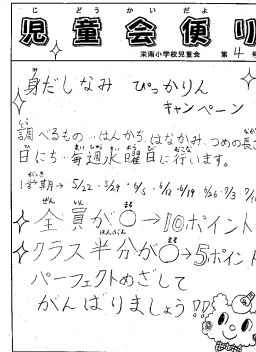 じどうかいだよ
児童会便り
栄南小学校児童会 第4号
身だしなみ ぴっかりん
キャンペーン
調べるもの…はんかち、はなかみ、つめの長さ
日にち…毎週水曜日に行います。
1学期→5/22・5/29・6/5・6/12・6/19・6/26・7/3・7/1
全員が○→10ポイント
クラス半分が○→5ポイント
パーフェクトめざして
がんばりましょう!!